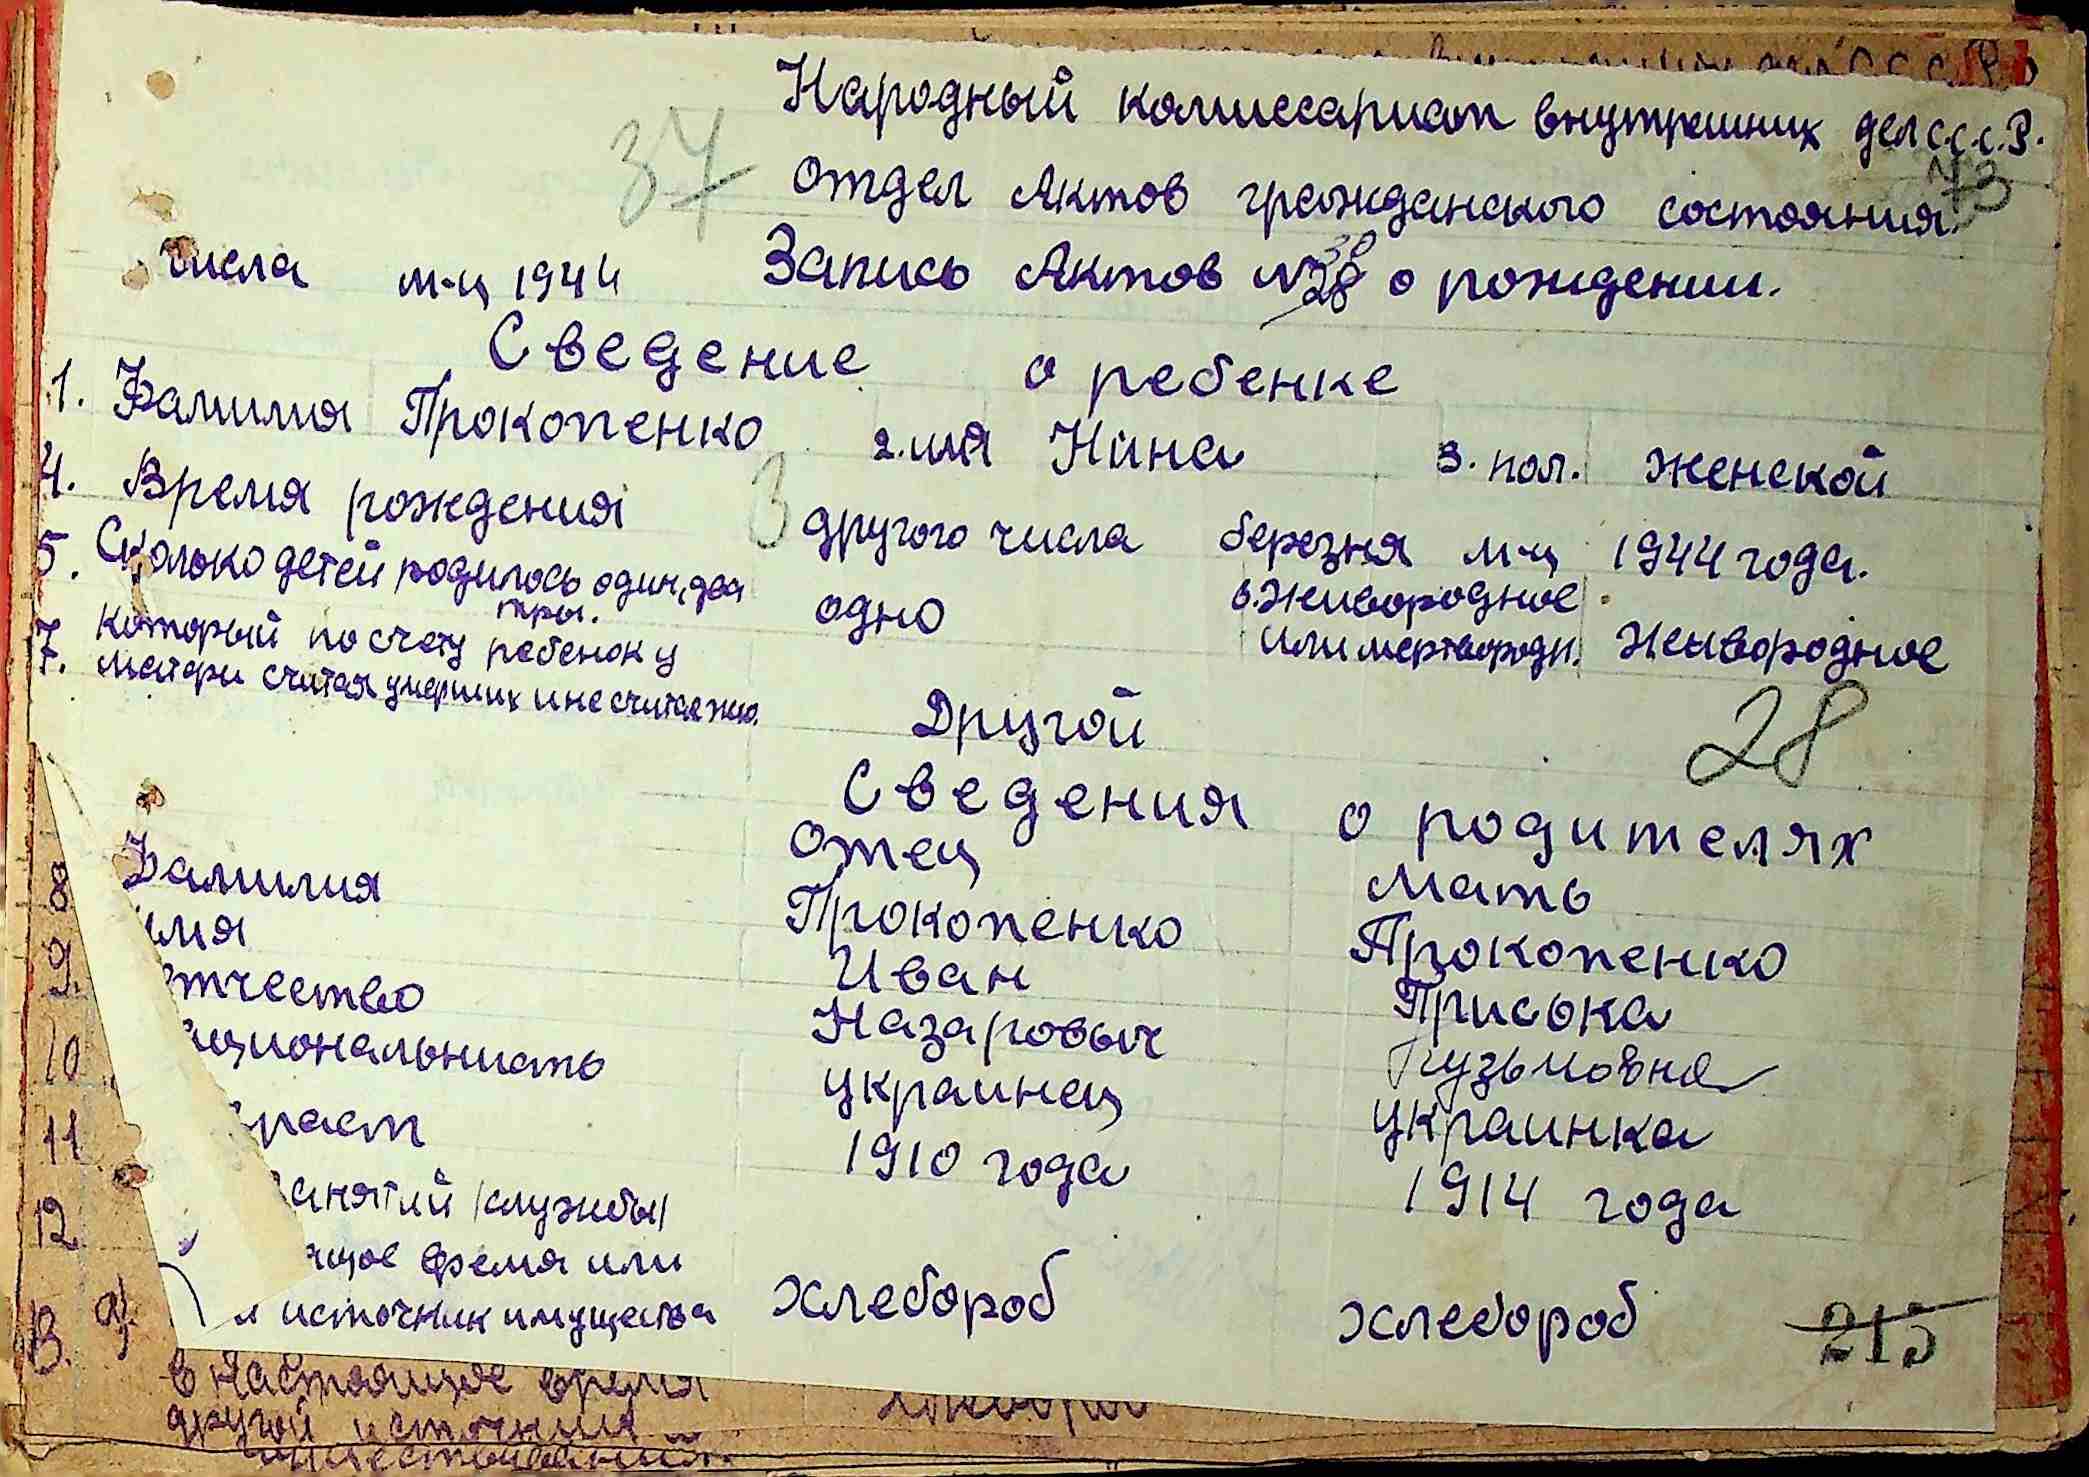 Народный комиссариат внутрешних дел С.С.С.Р.
37
отдел Актов гражданского состояния.
73
числа м-ц 1944 Запись Актов № 28 30 о рождении.
Сведение о ребенке
1. Фамилия Прокопенко 2. имя Нина 3. пол. женской
4. Время рождения 3 другого числа березня м-ц 1944 года.
5. Сколько детей родилось один, два тры. одно 6. Живородное или мертвородн. Живородное
7. который по счету ребенок у
матери считая умерших и не считае
Другой
28
Сведения о родителях
Отец Мать
8 Фамилия Прокопенко Прокопенко
имя Иван Приська
9. отчество Назаровыч Кузьмовна
10 ациональнисть украинец украинка
11 зраст 1910 года 1914 года
12 анятий /службы/
щое время или
В. а) и источник имущества хлебороб хлебороб
215
в настоящое время
другой источник